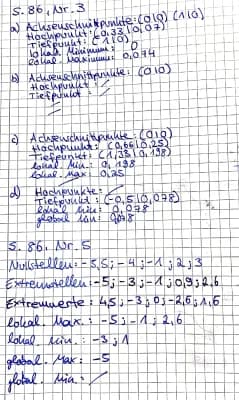 S. 86, Nr. 3
a) Achsenschnittpunkte: (0|0) (1|0)
Hochpunkt: (0,33|0,07)
Tiefpunkt: (1|0)
lokal. Minimum: 0
lokal. Maximum: 0,074
b) Achsenschnittpunkte: (0|0)
Hochpunkt: /
Tiefpunkt: /
c) Achsenschnittpunkte: (0|0)
Hochpunkt: (0,66|0,25)
Tiefpunkt: (1,33|0,198)
lokal. Min.: 0,198
lokal. Max.: 0,25
d) Hochpunkte: /
Tiefpunkt: (-0,5|0,078)
lokal min: 0,078
global min: 0,078
S. 86, Nr. 5
Nullstellen: -5,5; -4; -1; 2; 3
Extremstellen: -5; -3; -1; 0,9; 2,6
Extremwerte: 4,5; -3; 0; -2,6; 1,6
lokal. Max.: -5; -1; 2,6
lokal. min.: -3; 1
global. Max: -5
global. Min.: /